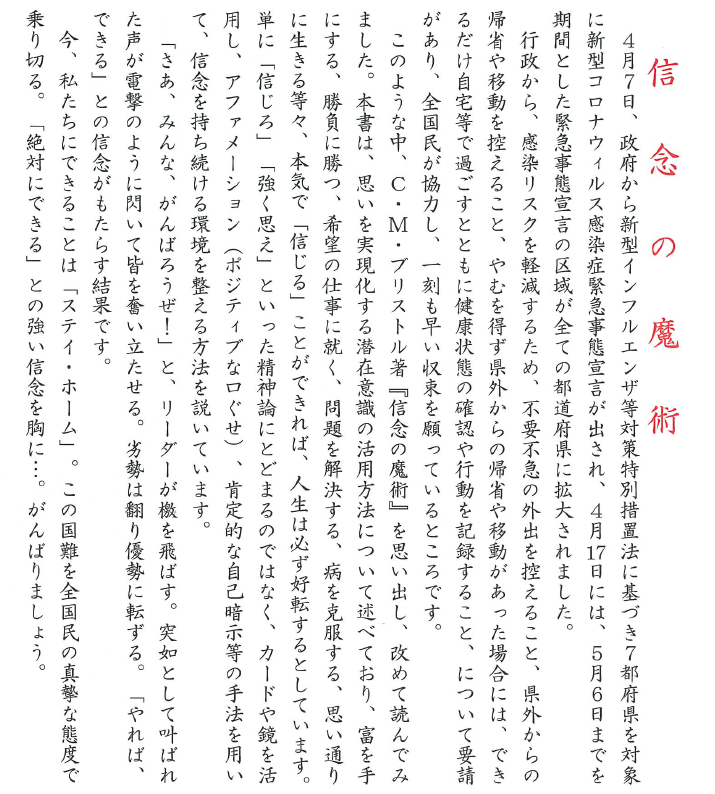 信念の魔術
４月７日、政府から新型インフルエンザ等対策特別措置法に基づき７都府県を対象
に新型コロナウィルス感染症緊急事態宣言が出され、４月17日には、５月６日までを
期間とした緊急事態宣言の区域が全ての都道府県に拡大されました。
行政から、感染リスクを軽減するため、不要不急の外出を控えること、県外からの
帰省や移動を控えること、やむを得ず県外からの帰省や移動があった場合には、でき
るだけ自宅等で過ごすとともに健康状態の確認や行動を記録すること、について要請
があり、全国民が協力し、一刻も早い収束を願っているところです。
このような中、Ｃ・Ｍ・ブリストル著『信念の魔術』を思い出し、改めて読んでみ
ました。本書は、思いを実現化する潜在意識の活用方法について述べており、富を手
にする、勝負に勝つ、希望の仕事に就く、問題を解決する、病を克服する、思い通り
に生きる等々、本気で「信じる」ことができれば、人生は必ず好転するとしています。
単に「信じろ」「強く思え」といった精神論にとどまるのではなく、カードや鏡を活
用し、アファメーション（ポジティブな口ぐせ）、肯定的な自己暗示等の手法を用い
て、信念を持ち続ける環境を整える方法を説いています。
「さあ、みんな、がんばろうぜ！」と、リーダーが檄を飛ばす。突如として叫ばれ
た声が電撃のように閃いて皆を奮い立たせる。劣勢は翻り優勢に転ずる。「やれば、
できる」との信念がもたらす結果です。
今、私たちにできることは「ステイ・ホーム」。この国難を全国民の真摯な態度で
乗り切る。「絶対にできる」との強い信念を胸に…。がんばりましょう。